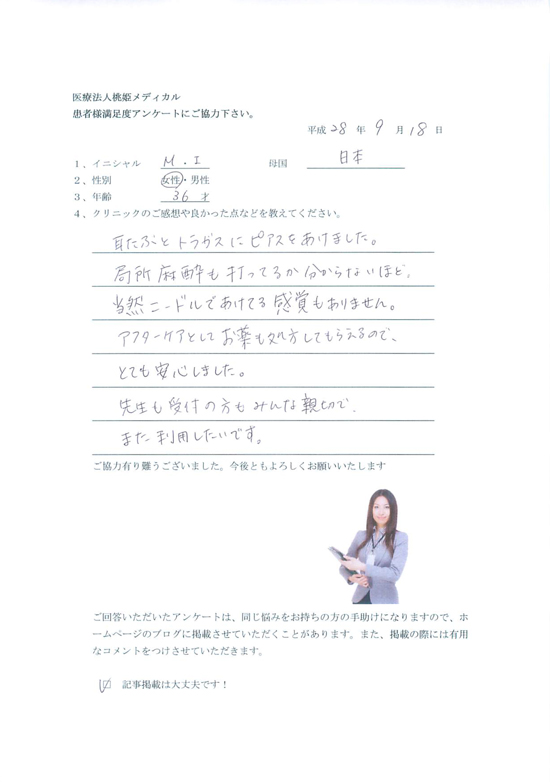 医療法人桃姫メディカル
患者様満足度アンケートにご協力下さい。
平成 28 年 9 月 18 日
1、イニシャル M . I 母国 日本
2、性別 女性・男性
3、年齢 36 才
4、クリニックのご感想や良かった点などを教えてください。
耳たぶとトラガスにピアスをあけました。
局所麻酔も打ってるか分からないほど、
当然ニードルであけてる感覚もありません。
アフターケアとしてお薬も処方してもらえるので、
とても安心しました。
先生も受付の方もみんな親切で、
また利用したいです。
ご協力有り難うございました。今後ともよろしくお願いいたします
ご回答いただいたアンケートは、同じ悩みをお持ちの方の手助けになりますので、ホ
ームページのブログに掲載させていただくことがあります。また、掲載の際には有用
なコメントをつけさせていただきます。
☑ 記事掲載は大丈夫です！